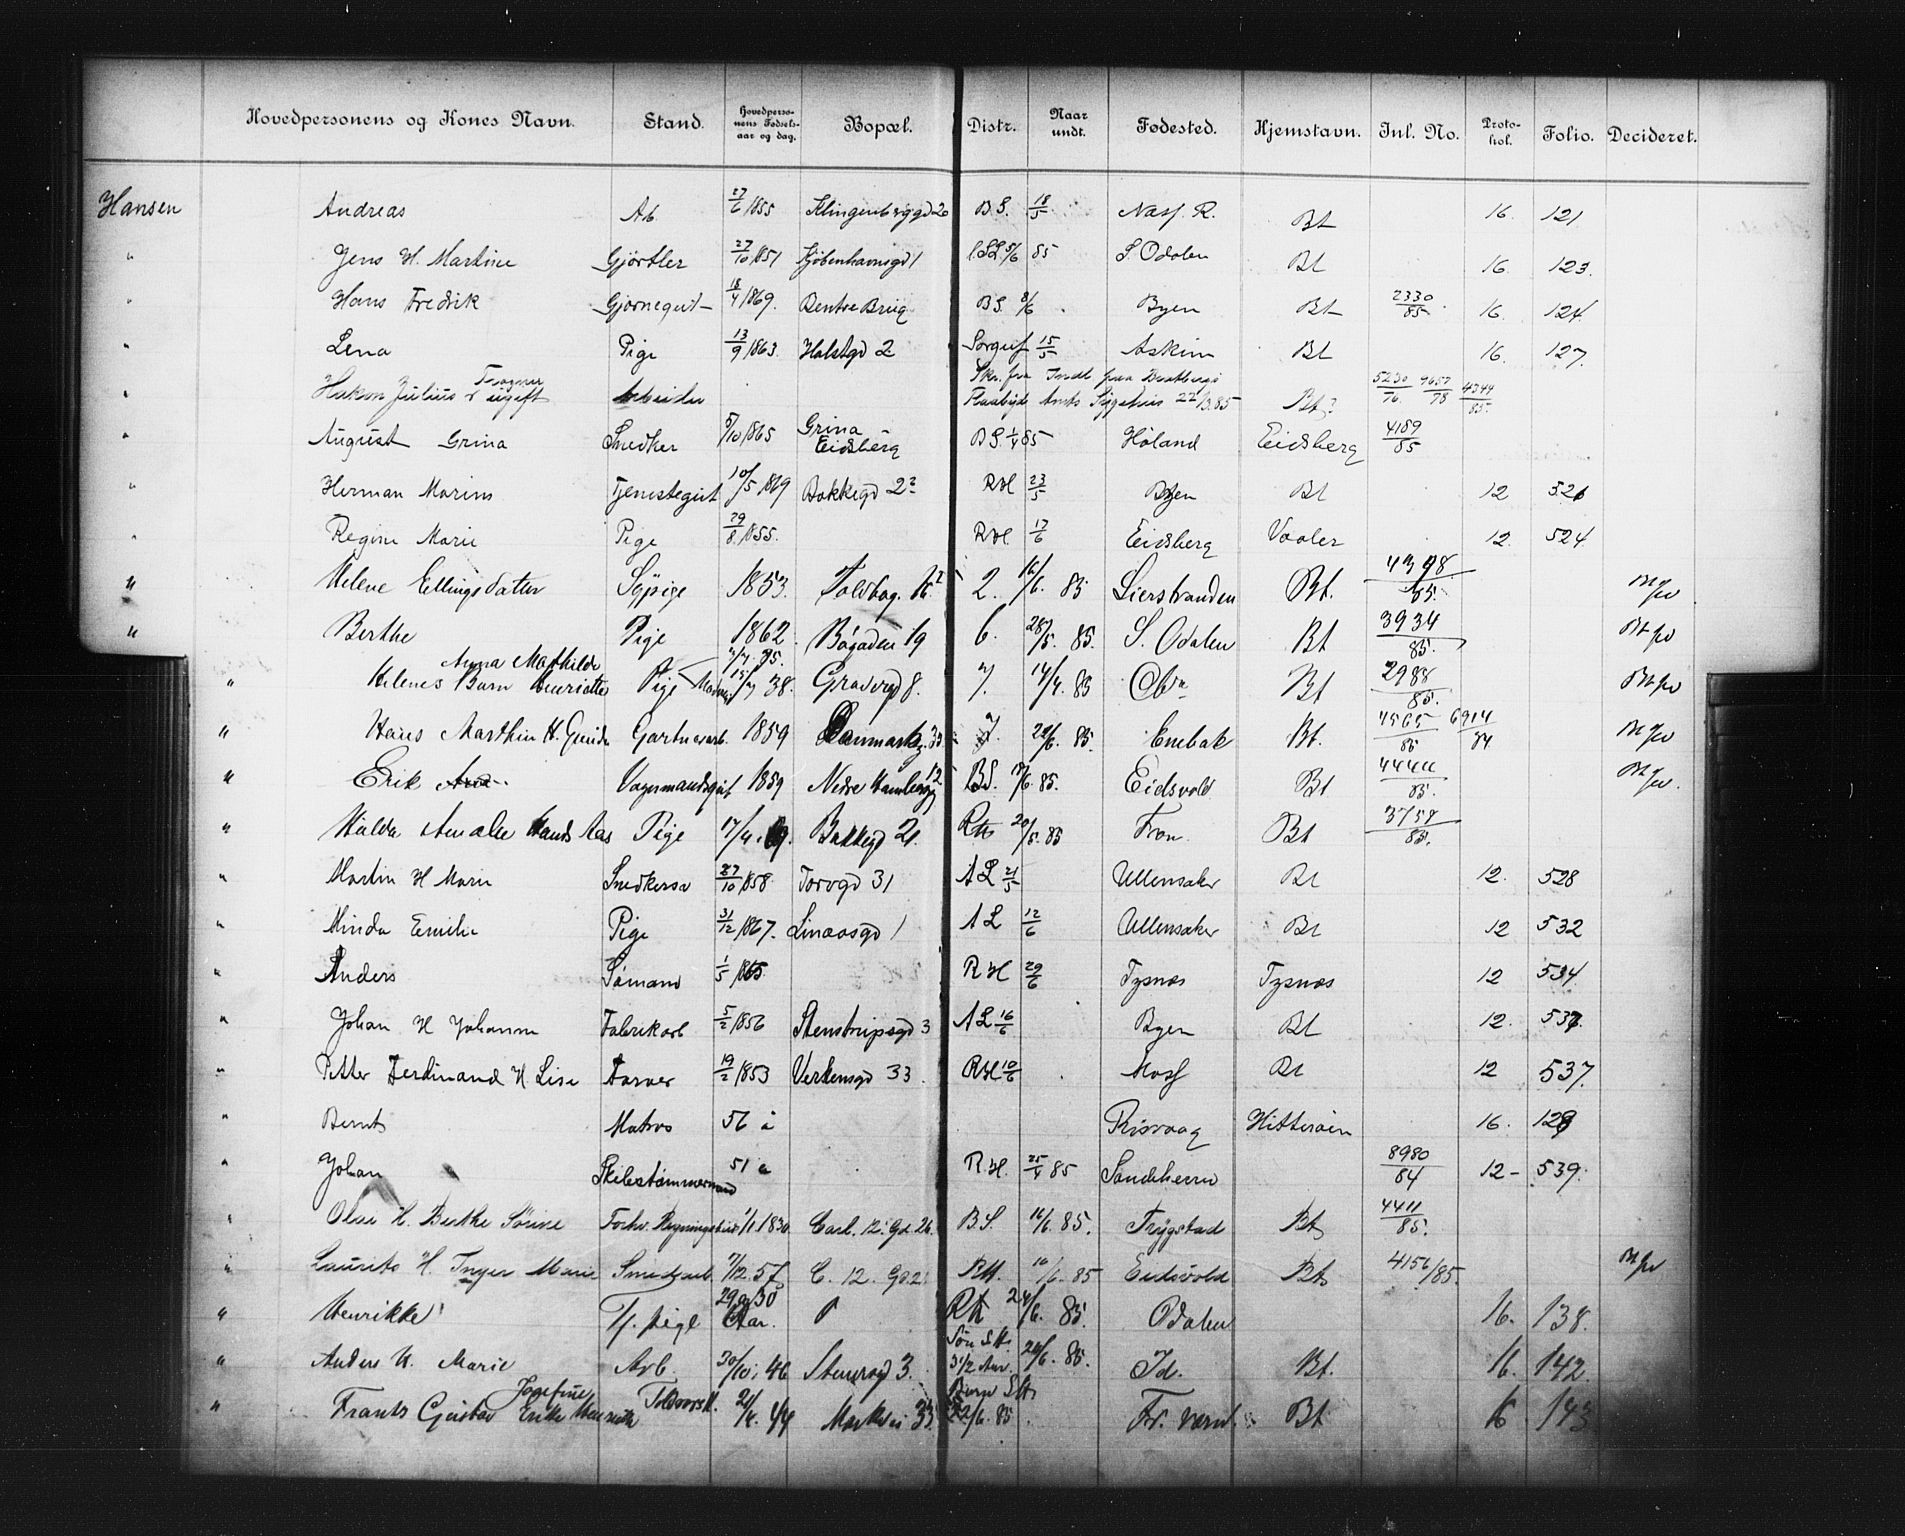 Hovedpersonens og Kones Navn. Stand. Hovedpersonens Fødselsaar og dag. Bopæl. Distr. Naar undt. Fødested. Hjemstavn. Inl. No. Protokol. Folio. Decideret.
Hansen Andreas Arb. 27/6 1855 Klingenberggd 20 B S. 18/5 Næss R. Bt 16. 121
" Jens H. Martine Gjørtler 27/10 1851 Kjøbenhavnsgd 1 5/6 85 S. Odalen Bt 16. 123.
" Hans Fredrik 18/4 1869. Bentse Brug B S. 8/6 Byen Bt 2330/85 16. 124.
" Lena Pige 13/9 1863. Holstgd 2 Sorgenf 15/5 Askim Bt 16. 127.
" Hakon Julius ugift Arbeider Sygehus 22/3.85 Bt? 5230/76. 9657/78 4344/85.
" August Grina Snedker 5/10 1865 Grina Eidsberg B S. 1/4 85 Høland Eidsberg 4189/85
" Herman Marius Tjenestegut 10/5 1869 Bakkegd 2² R H 23/5 Byen Bt 12 526
" Regine Marie Pige 29/8 1855. R H. 17/6 Eidsberg Vaaler 12. 524.
" Helene Ellingsdatter Sypige 1853. Toldbog. 2. 16/6. 85 Lierstranden Bt. 4398/85.
" Berthe Pige 1862. Bógaden 19 6. 28/5. 85. S. Odalen Bt 3934/85.
Anna Mathilde
" Helenes Barn Henriette Pige 38. Gravergd 8. 7. 14/4. 85 Chra Bt 2988/85.
" Hans Marthin H. Gunda Gartnerarb. 1859 Danmarksg. 33 7. 22/6. 85. Enebak Bt. 4565/85 6914/84
" Erik Vognmandsgut 1859 Nedre B S. 85. Eidsvold Bt 4444/85.
" Hulda Amalie Hansd Aas Pige 17/4. 69. Bakkegd 21. RH 20/5. 85 Fron Bt 3758/85.
" Martin H Marie Snedkersv 27/10 1858. Torvgd 31 A L 21/5 Ullensaker Bt 12. 528
" Minda Emilie Pige 31/12 1867. Linaasgd 1 A L 12/6 Ullensaker Bt 12 532
" Anders Sømand 1/5 1865 R H 29/6 Tysnæs Tysnæs 12 534
" Johan H Johanne Fabrikarb 5/2 1856 Stenstrupsgd 3 A L 16/6 Byen Bt 12. 537.
" Petter Ferdinand H Lise Farver 19/2 1853 Verkensgd 33 R H 10/6 Moss Bt 12 537.
" Bernt Matros 56 a Risvaag Hitterøen 16. 129
" Johan 51 a R. H. 25/4 85 Sandeherred 8980/84 12 - 539.
" Olea H. Berthe Sørine 1/1 1830. Carl. 12. Gd. 26. B S. 16/6 85. Trygstad Bt 4411/85.
" Laurits H. Inger Marie Smedgarb. 7/12. 57. C. 12. Gd. 2 RH. 16/6. 85 Eidsvold Bt 4156/85.
" Henrikke T/j. pige 29 a 30 Aar. RH 24/6. 85. Odalen 16. 138.
" Anders H. Marie Arb. 30/10. 46 Stenersgd 3. 3 1/2 Aar. 22/6. 85. Id. Bt. 16. 142.
Josefine
" Frants Gustav 21/4. 44 Markvei 33 22/6. 85 Bt 16 143